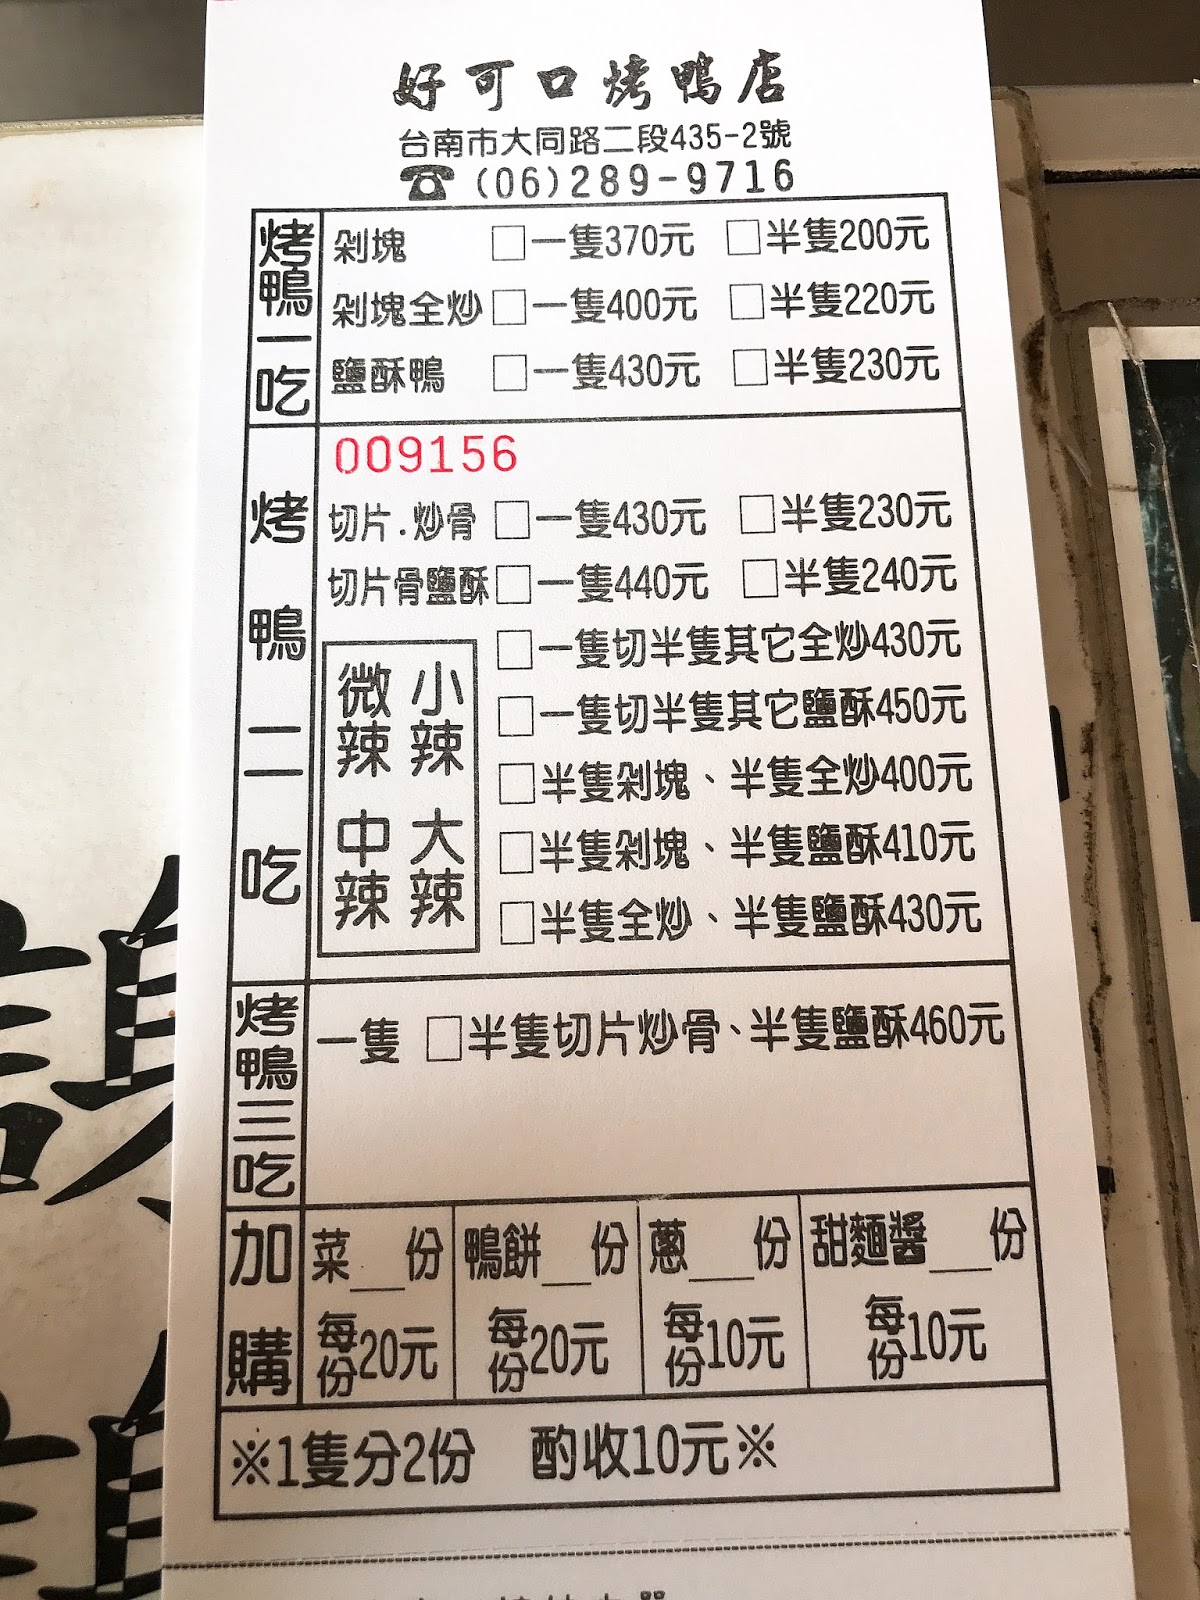 好可口烤鴨店
台南市大同路二段435-2號
☎(06)289-9716
烤鴨一吃
剁塊 □一隻370元 □半隻200元
剁塊全炒□一隻400元 □半隻220元
鹽酥鴨 □一隻430元 □半隻230元
烤鴨二吃
009156
切片.炒骨□一隻430元 □半隻230元
切片骨鹽酥□一隻440元 □半隻240元
□一隻切半隻其它全炒430元
□一隻切半隻其它鹽酥450元
□半隻剁塊、半隻全炒400元
□半隻剁塊、半隻鹽酥410元
□半隻全炒、半隻鹽酥430元
微辣 小辣
中辣 大辣
烤鴨三吃
一隻 □半隻切片炒骨、半隻鹽酥460元
加購
菜__份 鴨餅__份 蔥__份 甜麵醬__份
每份20元 每份20元 每份10元 每份10元
※1隻分2份 酌收10元※